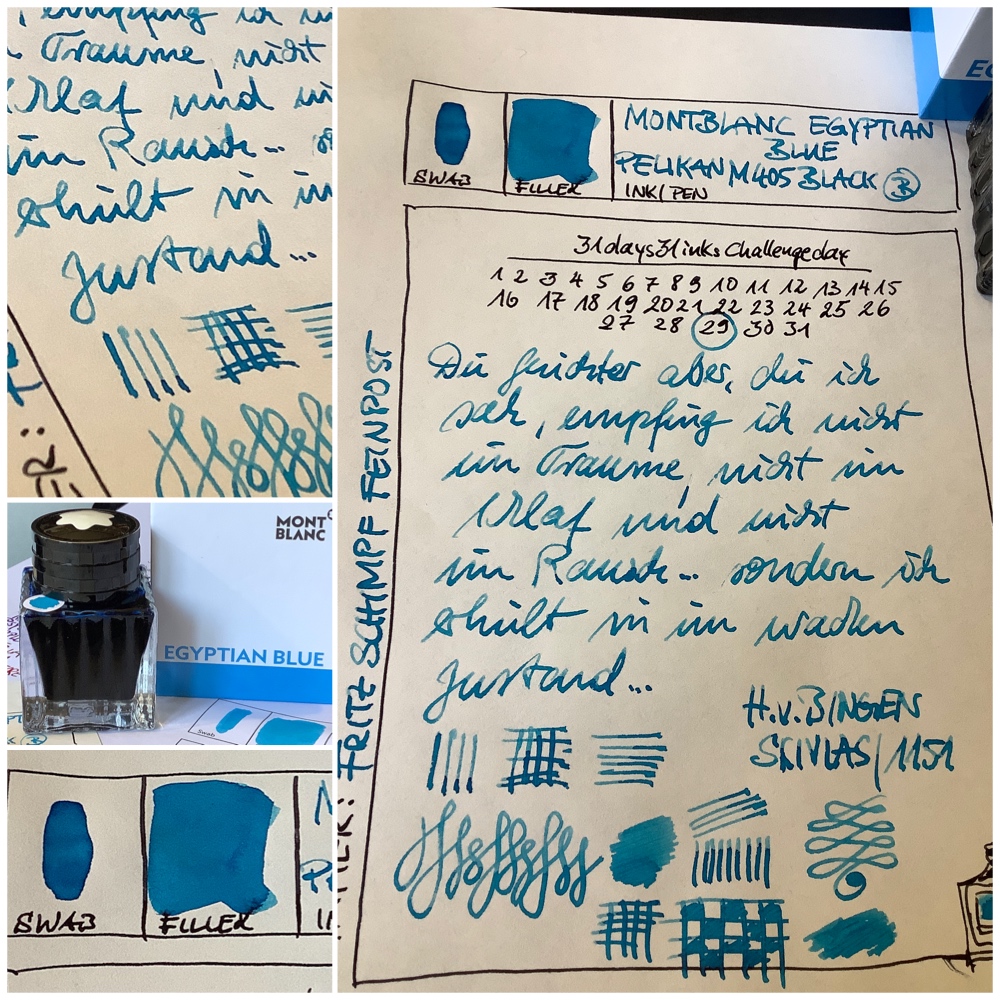 empfing ich ni
Traume, nicht
Urlaf und ni
im Rausch...
erhült in im
zustand...
MONT
BLANC
EGYPTIAN BLUE
Swab
SWAB
FILLER
SWAB
FILLER
MONTBLANC EGYPTIAN
BLUE
PELIKAN M405 BLACK B
INK/PEN
31days31inksChallengeday
1 2 3 4 5 6 7 8 9 10 11 12 13 14 15
16 17 18 19 20 21 22 23 24 25 26
27 28 29 30 31
Du aber, du ich
sah, empfing ich nicht
im Traume, nicht im
und nicht
im Rausch... sondern ich
in im
zustand...
H.v.BINGEN
SCIVIAS/1151
FRITZ SCHIMPF FEINPOST